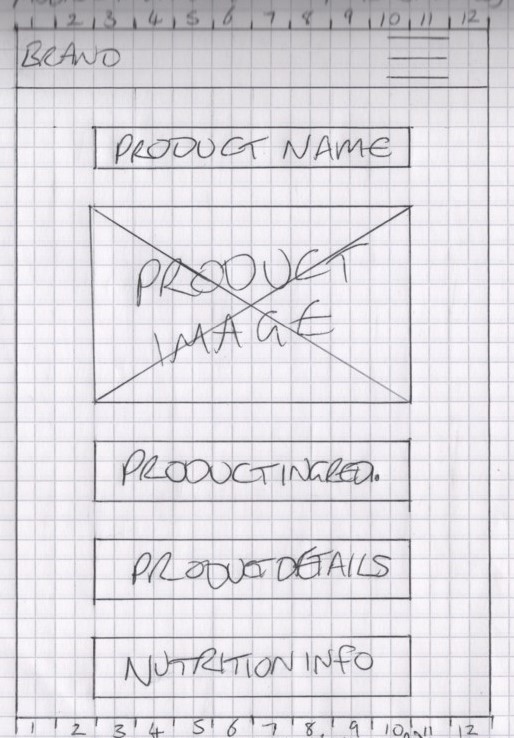 1 2 3 4 5 6 7 8 9 10 11 12
BRAND
PRODUCT NAME
PRODUCT
IMAGE
PRODUCT INGRED.
PRODUCT DETAILS
NUTRITION INFO
1 2 3 4 5 6 7 8 9 10 11 12